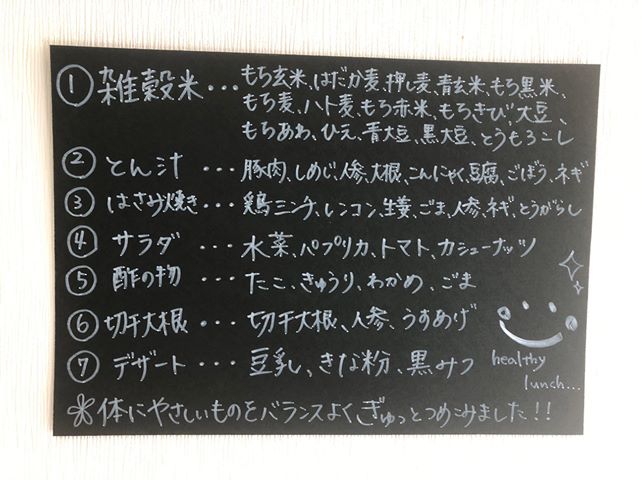 ① 雑穀米・・・もち玄米、はだか麦、押し麦、青玄米、もち黒米、
もち麦、ハト麦、もち赤米、もちきび、大豆、
もちあわ、ひえ、青大豆、黒大豆、とうもろこし
② とん汁・・・豚肉、しめじ、人参、大根、こんにゃく、豆腐、ごぼう、ネギ
③ はさみ焼き・・・鶏ミンチ、レンコン、生姜、ごま、人参、ネギ、とうがらし
④ サラダ・・・水菜、パプリカ、トマト、カシューナッツ
⑤ 酢の物・・・たこ、きゅうり、わかめ、ごま
⑥ 切干大根・・・切干大根、人参、うすあげ
⑦ デザート・・・豆乳、きな粉、黒みつ
healthy
lunch...
体にやさしいものをバランスよく、ぎゅっとつめこみました!!